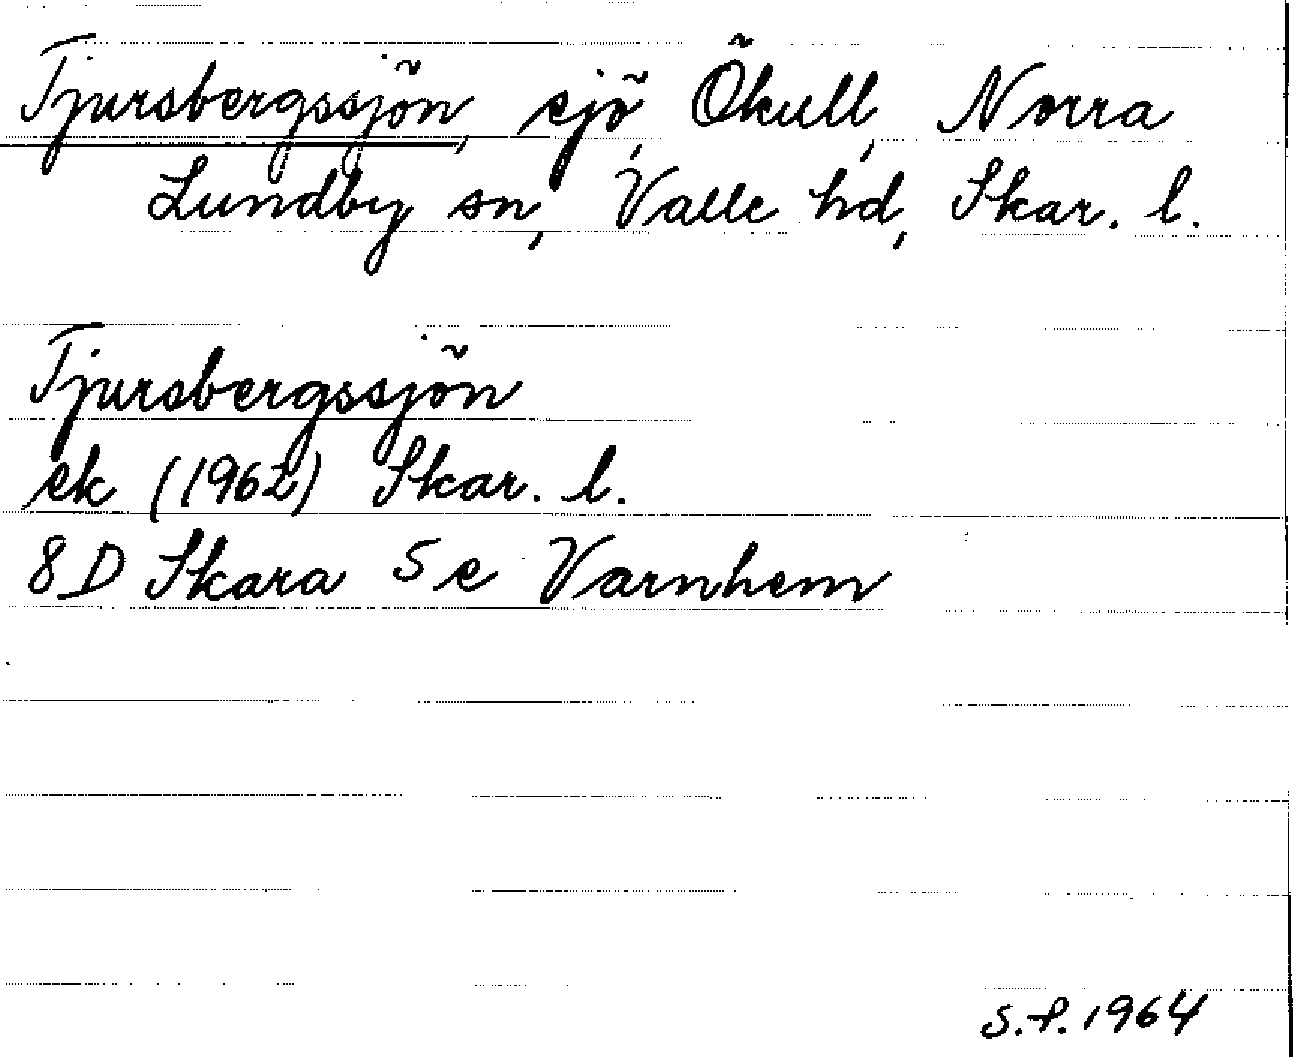 Tjursbergssjön, sjö, Ökull, Norra
Lundby sn, Valle hd, Skar. l.
Tjursbergssjön
ek (1962) Skar. l.
8D Skara 5e Varnhem
S.P. 1964